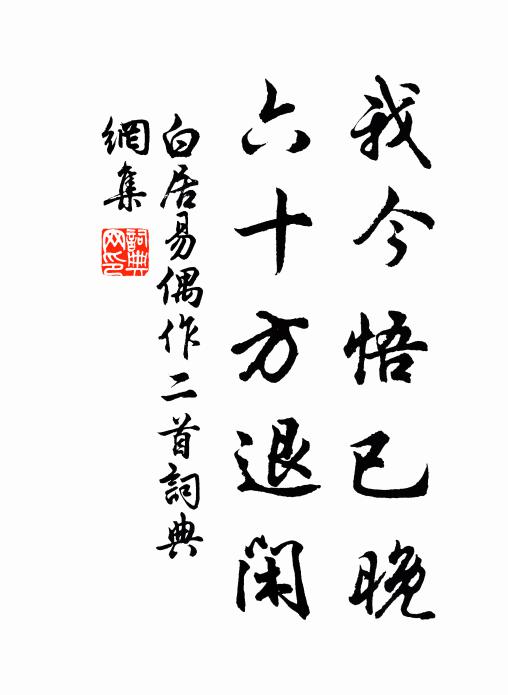 我今悟已晚
六十方退闲
白居易偶作二首詞典
網集
詞典
网印